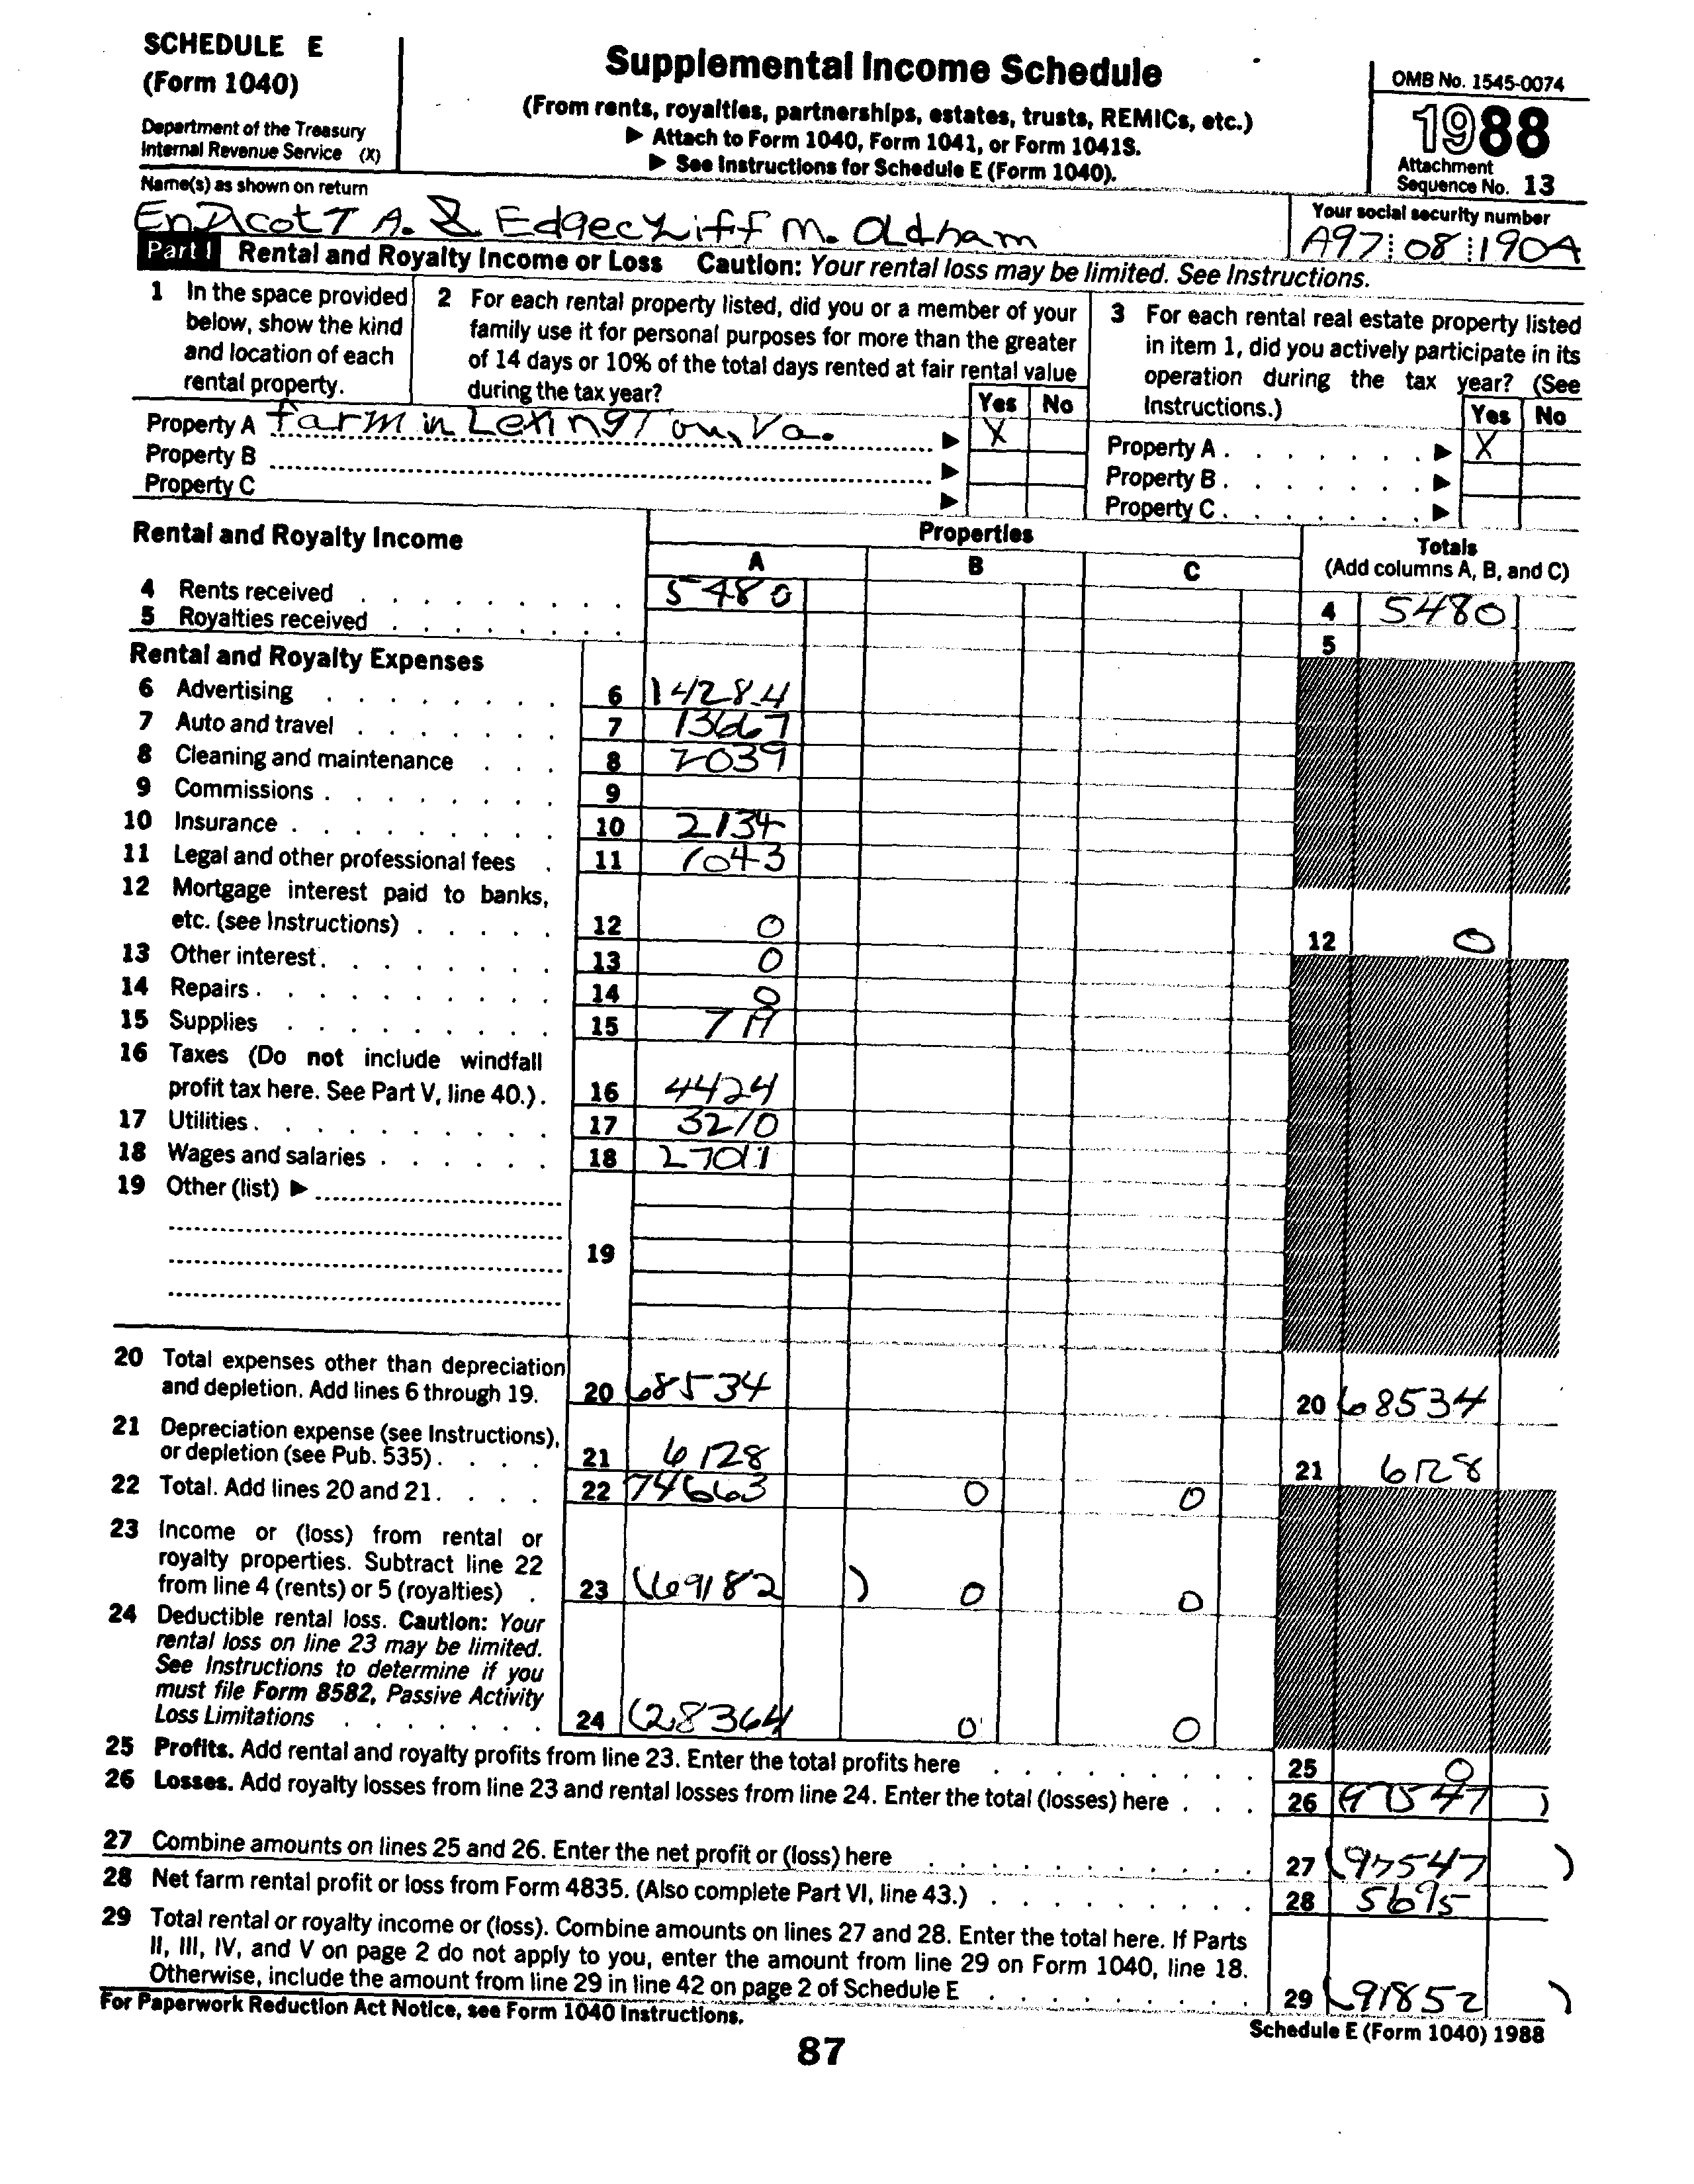 SCHEDULE E
(Form 1040)
Department of the Treasury
Internal Revenue Service (X)
Supplemental Income Schedule
(From rents, royalties, partnerships, estates, trusts, REMICs, etc.)
▶ Attach to Form 1040, Form 1041, or Form 1041S.
▶ See Instructions for Schedule E (Form 1040).
OMB No. 1545-0074
1988
Attachment
Sequence No. 13
Name(s) as shown on return
EndicotT A. & Edgecliff M. Oldham
Your social security number
A97 08 190A
Part I Rental and Royalty Income or Loss Caution: Your rental loss may be limited. See Instructions.
1 In the space provided
below, show the kind
and location of each
rental property.
2 For each rental property listed, did you or a member of your
family use it for personal purposes for more than the greater
of 14 days or 10% of the total days rented at fair rental value
during the tax year?
Yes No
3 For each rental real estate property listed
in item 1, did you actively participate in its
operation during the tax year? (See
Instructions.)
Yes No
Property A farm in LexingTon, Va. ▶ X
Property B ▶
Property C ▶
Property A ▶ X
Property B ▶
Property C ▶
Rental and Royalty Income
Properties
A B C
Totals
(Add columns A, B, and C)
4 Rents received 5480 4 5480
5 Royalties received 5
Rental and Royalty Expenses
6 Advertising 6 14284
7 Auto and travel 7 13667
8 Cleaning and maintenance 8 2039
9 Commissions 9
10 Insurance 10 2134
11 Legal and other professional fees 11 1043
12 Mortgage interest paid to banks,
etc. (see Instructions) 12 0 12 0
13 Other interest 13 0
14 Repairs 14 0
15 Supplies 15
16 Taxes (Do not include windfall
profit tax here. See Part V, line 40.) 16 4424
17 Utilities 17 3210
18 Wages and salaries 18 27011
19 Other (list) ▶
19
20 Total expenses other than depreciation
and depletion. Add lines 6 through 19. 20 68534 20 68534
21 Depreciation expense (see Instructions),
or depletion (see Pub. 535) 21 6128 21 6128
22 Total. Add lines 20 and 21 22 74663 0 0
23 Income or (loss) from rental or
royalty properties. Subtract line 22
from line 4 (rents) or 5 (royalties) 23 (69182) 0 0
24 Deductible rental loss. Caution: Your
rental loss on line 23 may be limited.
See Instructions to determine if you
must file Form 8582, Passive Activity
Loss Limitations 24 (28364 0 0
25 Profits. Add rental and royalty profits from line 23. Enter the total profits here 25 0
26 Losses. Add royalty losses from line 23 and rental losses from line 24. Enter the total (losses) here 26 (97547)
27 Combine amounts on lines 25 and 26. Enter the net profit or (loss) here 27 (97547)
28 Net farm rental profit or loss from Form 4835. (Also complete Part VI, line 43.) 28 5695
29 Total rental or royalty income or (loss). Combine amounts on lines 27 and 28. Enter the total here. If Parts
II, III, IV, and V on page 2 do not apply to you, enter the amount from line 29 on Form 1040, line 18.
Otherwise, include the amount from line 29 in line 42 on page 2 of Schedule E 29 (91852)
For Paperwork Reduction Act Notice, see Form 1040 Instructions.
Schedule E (Form 1040) 1988
87